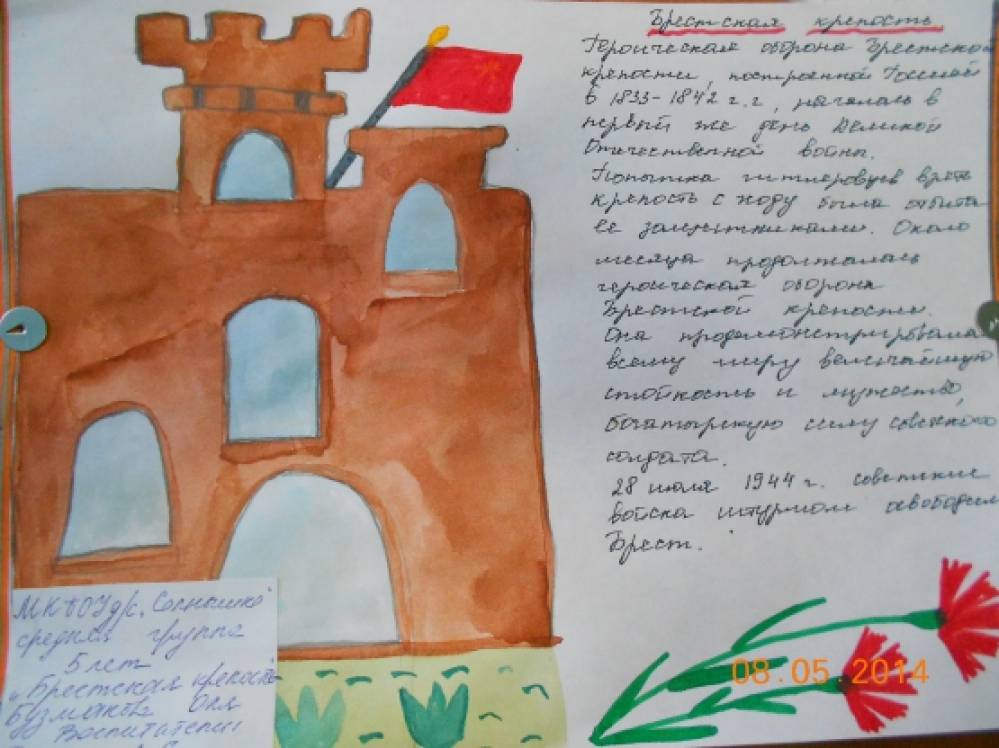 Брестская крепость
Героическая оборона Брестской
крепости, построенной Россией
в 1833-1842 г.г., началась в
первый же день Великой
Отечественной войны.
Попытка гитлеровцев взять
крепость с ходу была отбита
ее защитниками. Около
месяца продолжалась
героическая оборона
Брестской крепости.
Она продемонстрировала
всему миру величайшую
стойкость и мужество,
богатырскую силу советского
солдата.
28 июля 1944 г. советские
войска штурмом освободили
Брест.
МКДОУ д/с "Солнышко"
средняя группа
5 лет
"Брестская крепость"
Оля
Воспитатели
08.05.2014